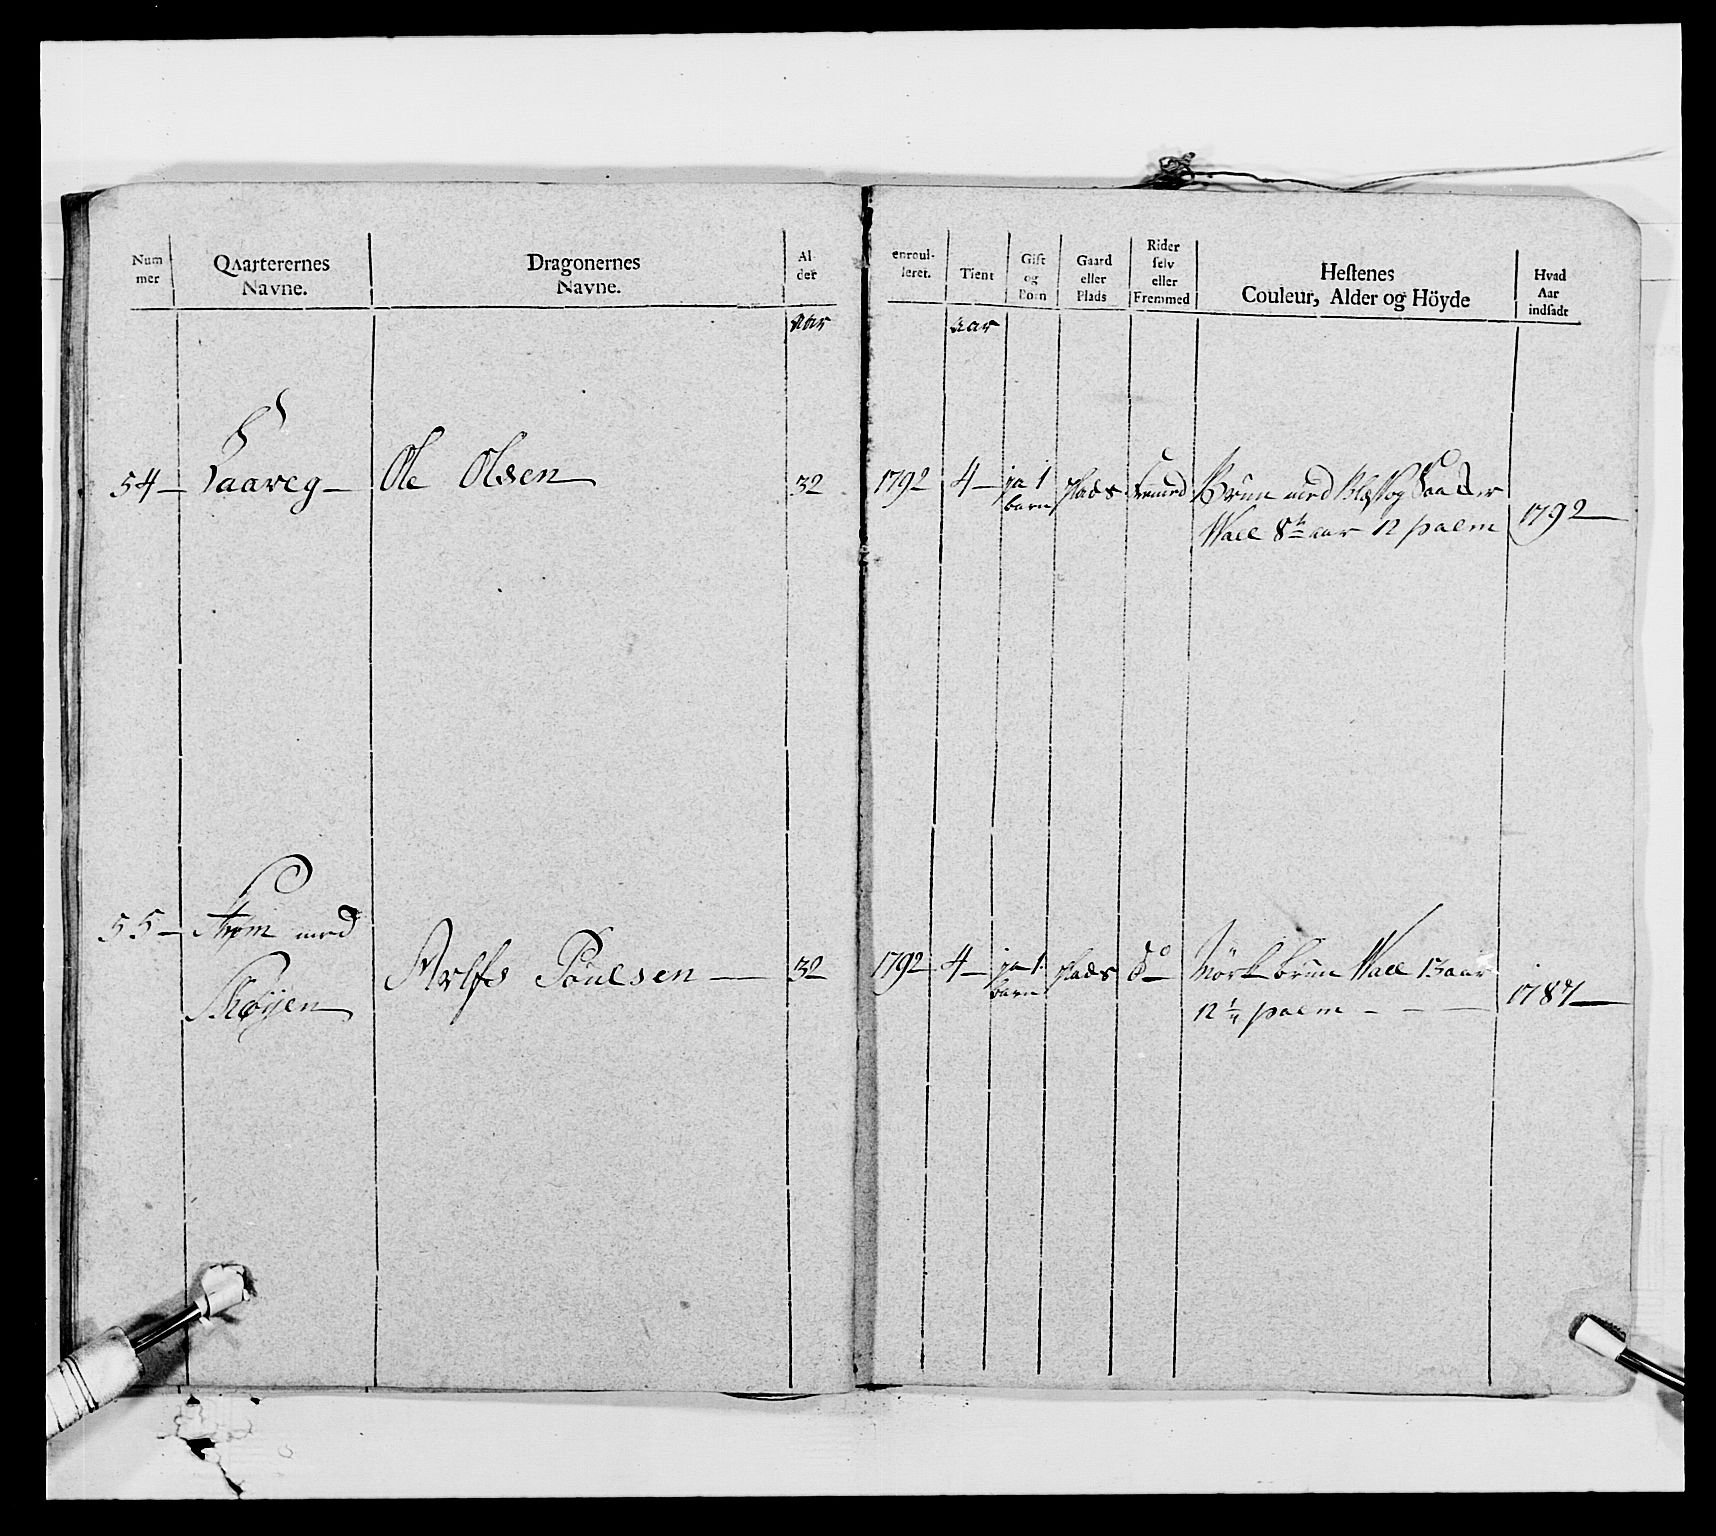 Num mer
Qvarterernes Navne.
Dragonernes Navne.
Al der
enroul- leret.
Tient
Gift og Born
Gaard eller Plads
Rider selv eller Fremmed
Hestenes Couleur, Alder og Höyde
Hvad Aar indsadt
aar
aar
54 Faaveg Ole Olsen 32 1792 4 ja 1 barn plads fremed Brun med Blis og
Wall 8te aar 12 palm 1792
55 Strøm med
Skøyen Poulsen 32 1792 4 ja 1 barn plads do Mörk brun Wall 13 aar
12 palm 1787